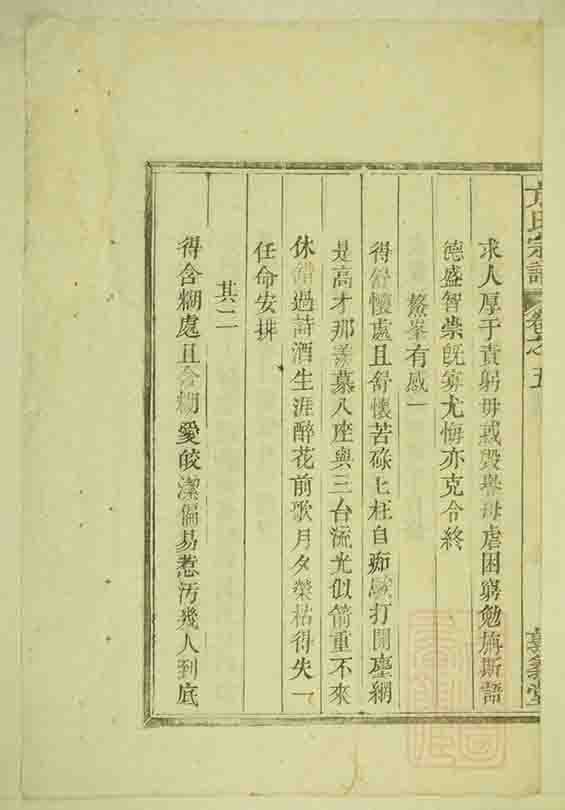 氏宗譜 卷之五
求人厚于責躬毋惑毀譽毋虐困窮勉旃斯語
德盛智崇旣寡尤悔亦克令終
鰲峯有感一
得舒懷處且舒懷苦碌七枉自痴獃打開塵網
是高才那羡慕八座與三台流光似箭重不來
休錯過詩酒生涯醉花前歌月夕榮枯得失一
任命安排
其二
得含糊處且含糊愛皎潔偏易惹汚幾人到底